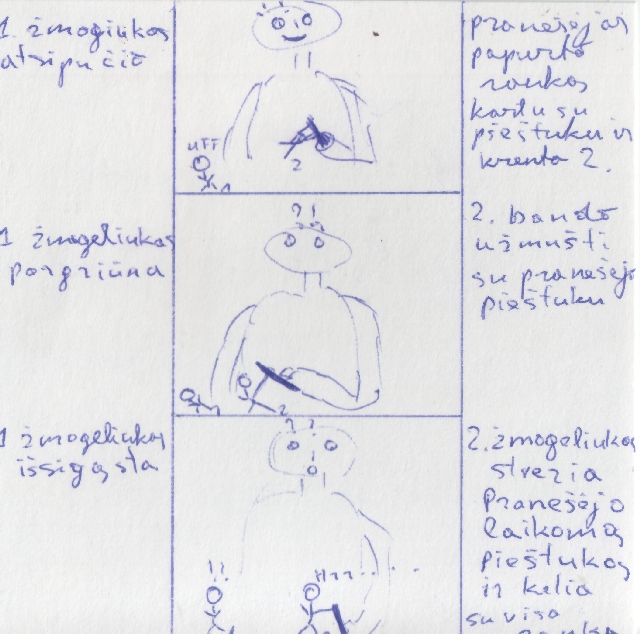 1. žmogiukas
atsipučia
UFF
2
1
pranešėjas
papurto
rankas
kartu su
pieštuku ir
krenta 2.
1 žmogeliukas
pargriūna
?!
2
2. bando
užmušti
su pranešėjo
pieštuku
1 žmogeliukas
išsigąsta
??
!!
H77....
2. žmogeliukas
Pranešėjo
laikomą
pieštuką
ir kelia
su visa
ranka